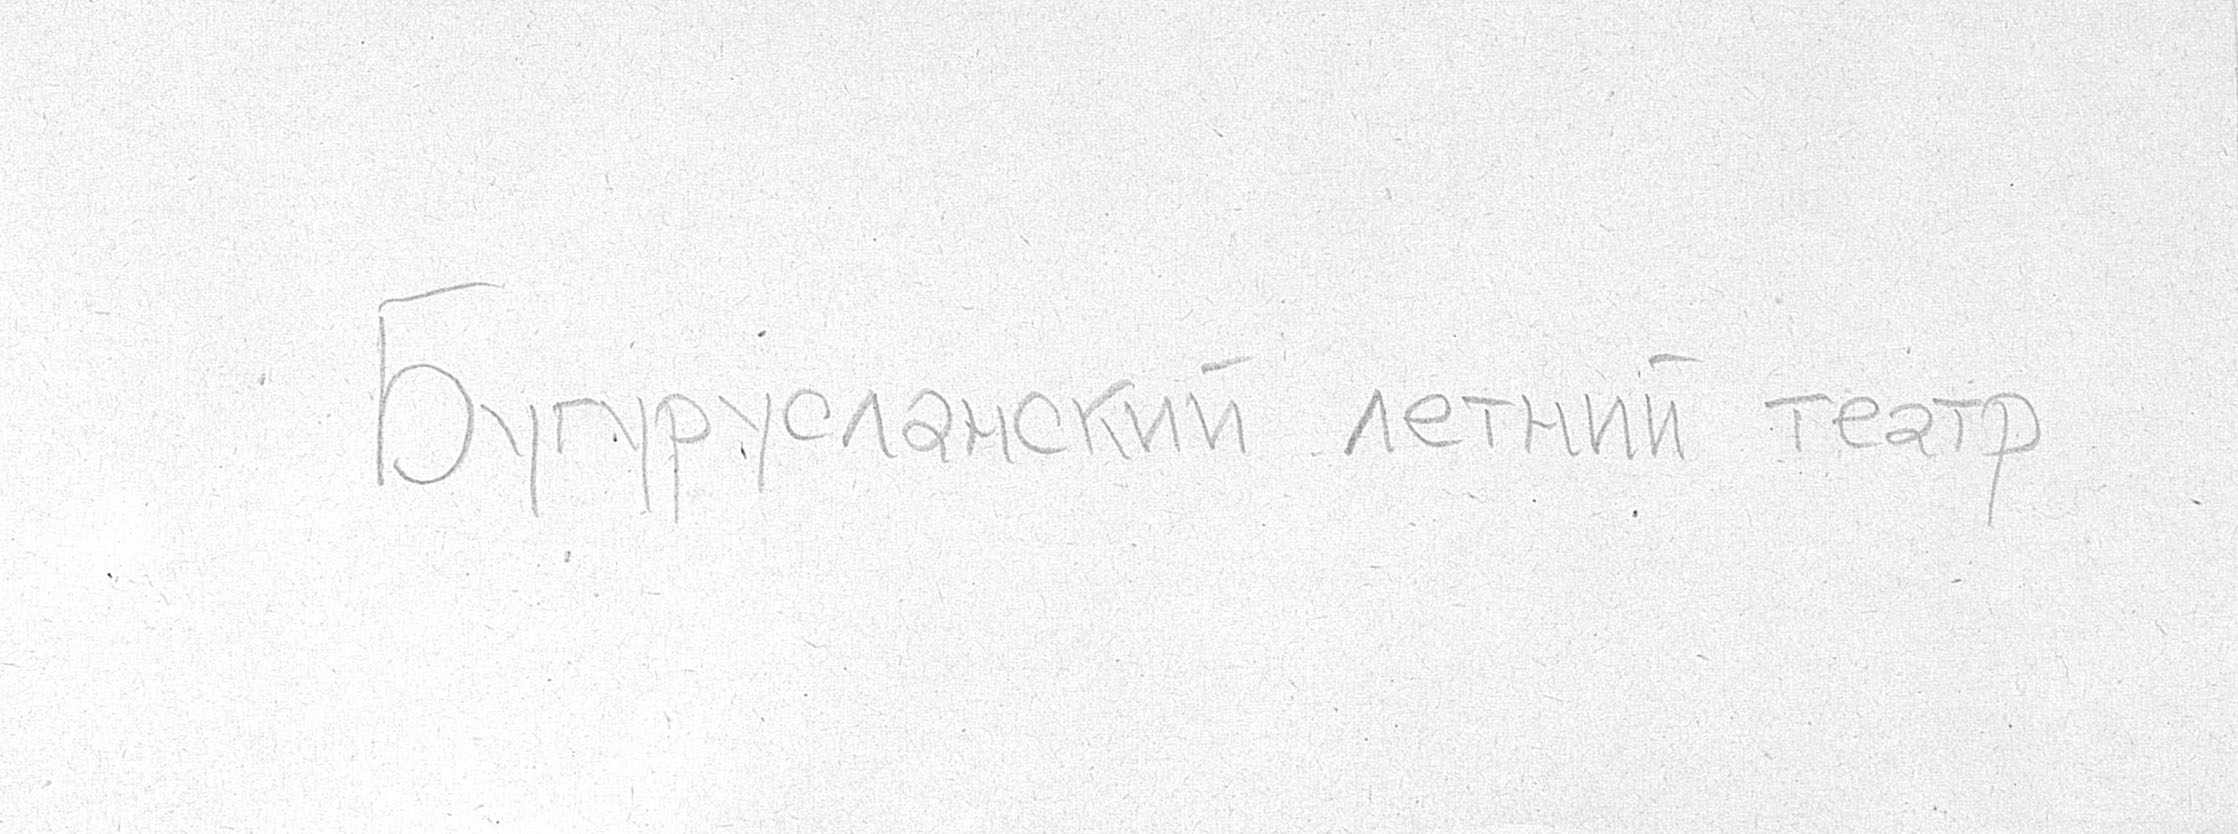 Бугурусланский летний театр